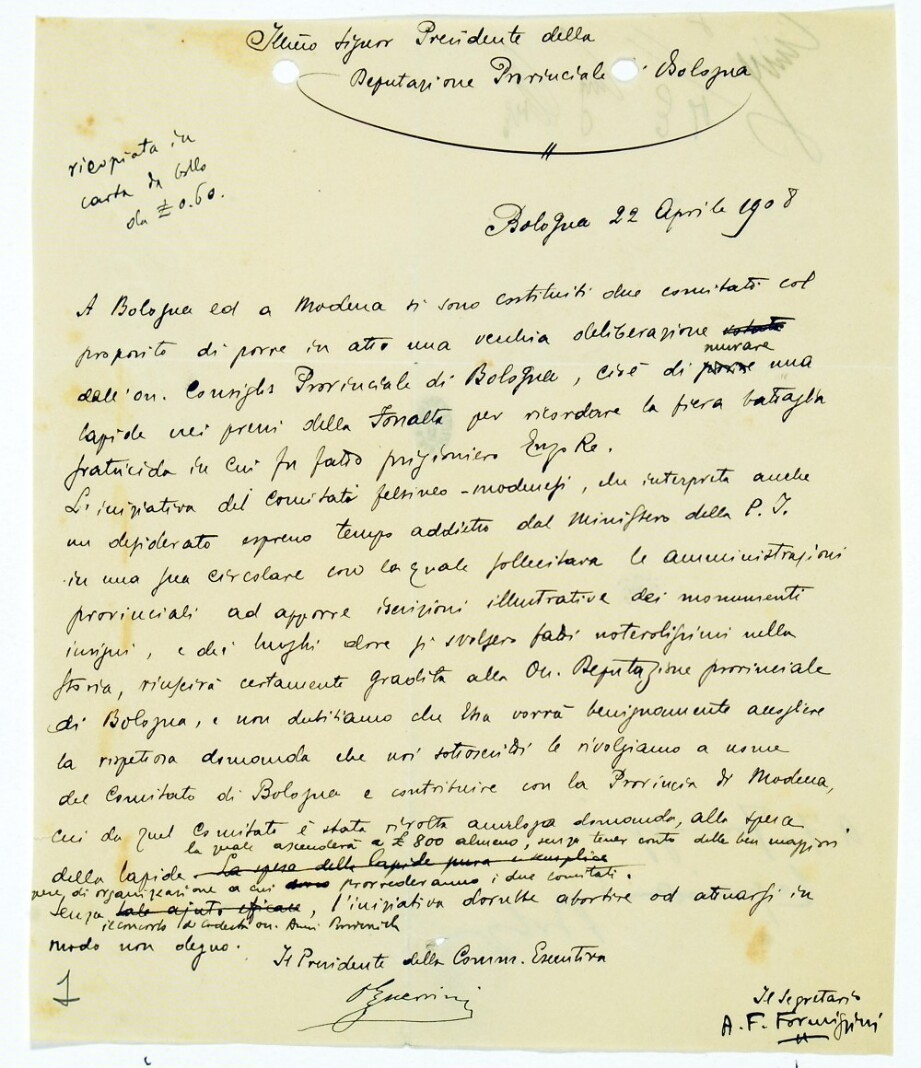 Illmo Signor Presidente della
Deputazione Provinciale di Bologna
ricopiata in
carta da bollo
da £ 0.60.
Bologna 22 Aprile 1908
A Bologna ed a Modena si sono costituiti due comitati col
proposito di porre in atto una vecchia deliberazione votata
murare
dall'on. Consiglio Provinciale di Bologna, cioè di porre una
lapide nei pressi della Fossalta per ricordare la fiera battaglia
fratricida in cui fu fatto prigioniero Enzo Re.
L'iniziativa del Comitato felsineo-modenesi, che interpreta anche
un desiderato espresso tempo addietro dal Ministero della P. I.
in una sua circolare con la quale sollecitava le amministrazioni
provinciali ad apporre iscrizioni illustrative dei monumenti
insigni, e dei luoghi dove si svolsero fatti notevolissimi nella
storia, riuscirà certamente gradita alla On. Deputazione provinciale
di Bologna, e non dubitiamo che Essa vorrà benignamente accogliere
la rispettosa domanda che noi sottoscritti le rivolgiamo a nome
del Comitato di Bologna e contribuire con la Provincia di Modena,
cui da quel Comitato è stata rivolta analoga domanda, alla spesa
la quale ascenderà a £ 800 almeno, senza tener conto delle ben maggiori
della lapide. La spesa della lapide pura e semplice
spese di organizzazione a cui provvederanno i due comitati.
Senza tale ajuto efficace, l'iniziativa dovrebbe abortire od attuarsi in
il concorso di codesta on. Amm. Provinciale
modo non degno.
Il Presidente della Comm. Esecutiva
OGuerrini
Il Segretario
A. F. Formiggini
1